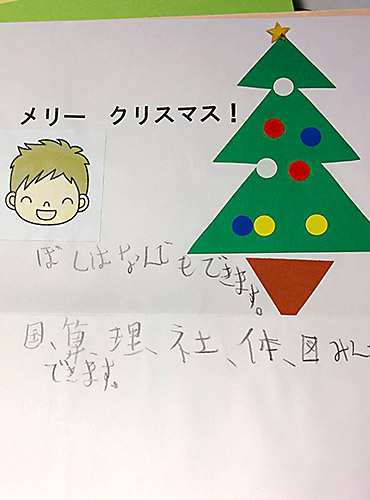 メリー クリスマス！
ぼしはなんでもできます。
国、算、理、社、体、図みん
できます。